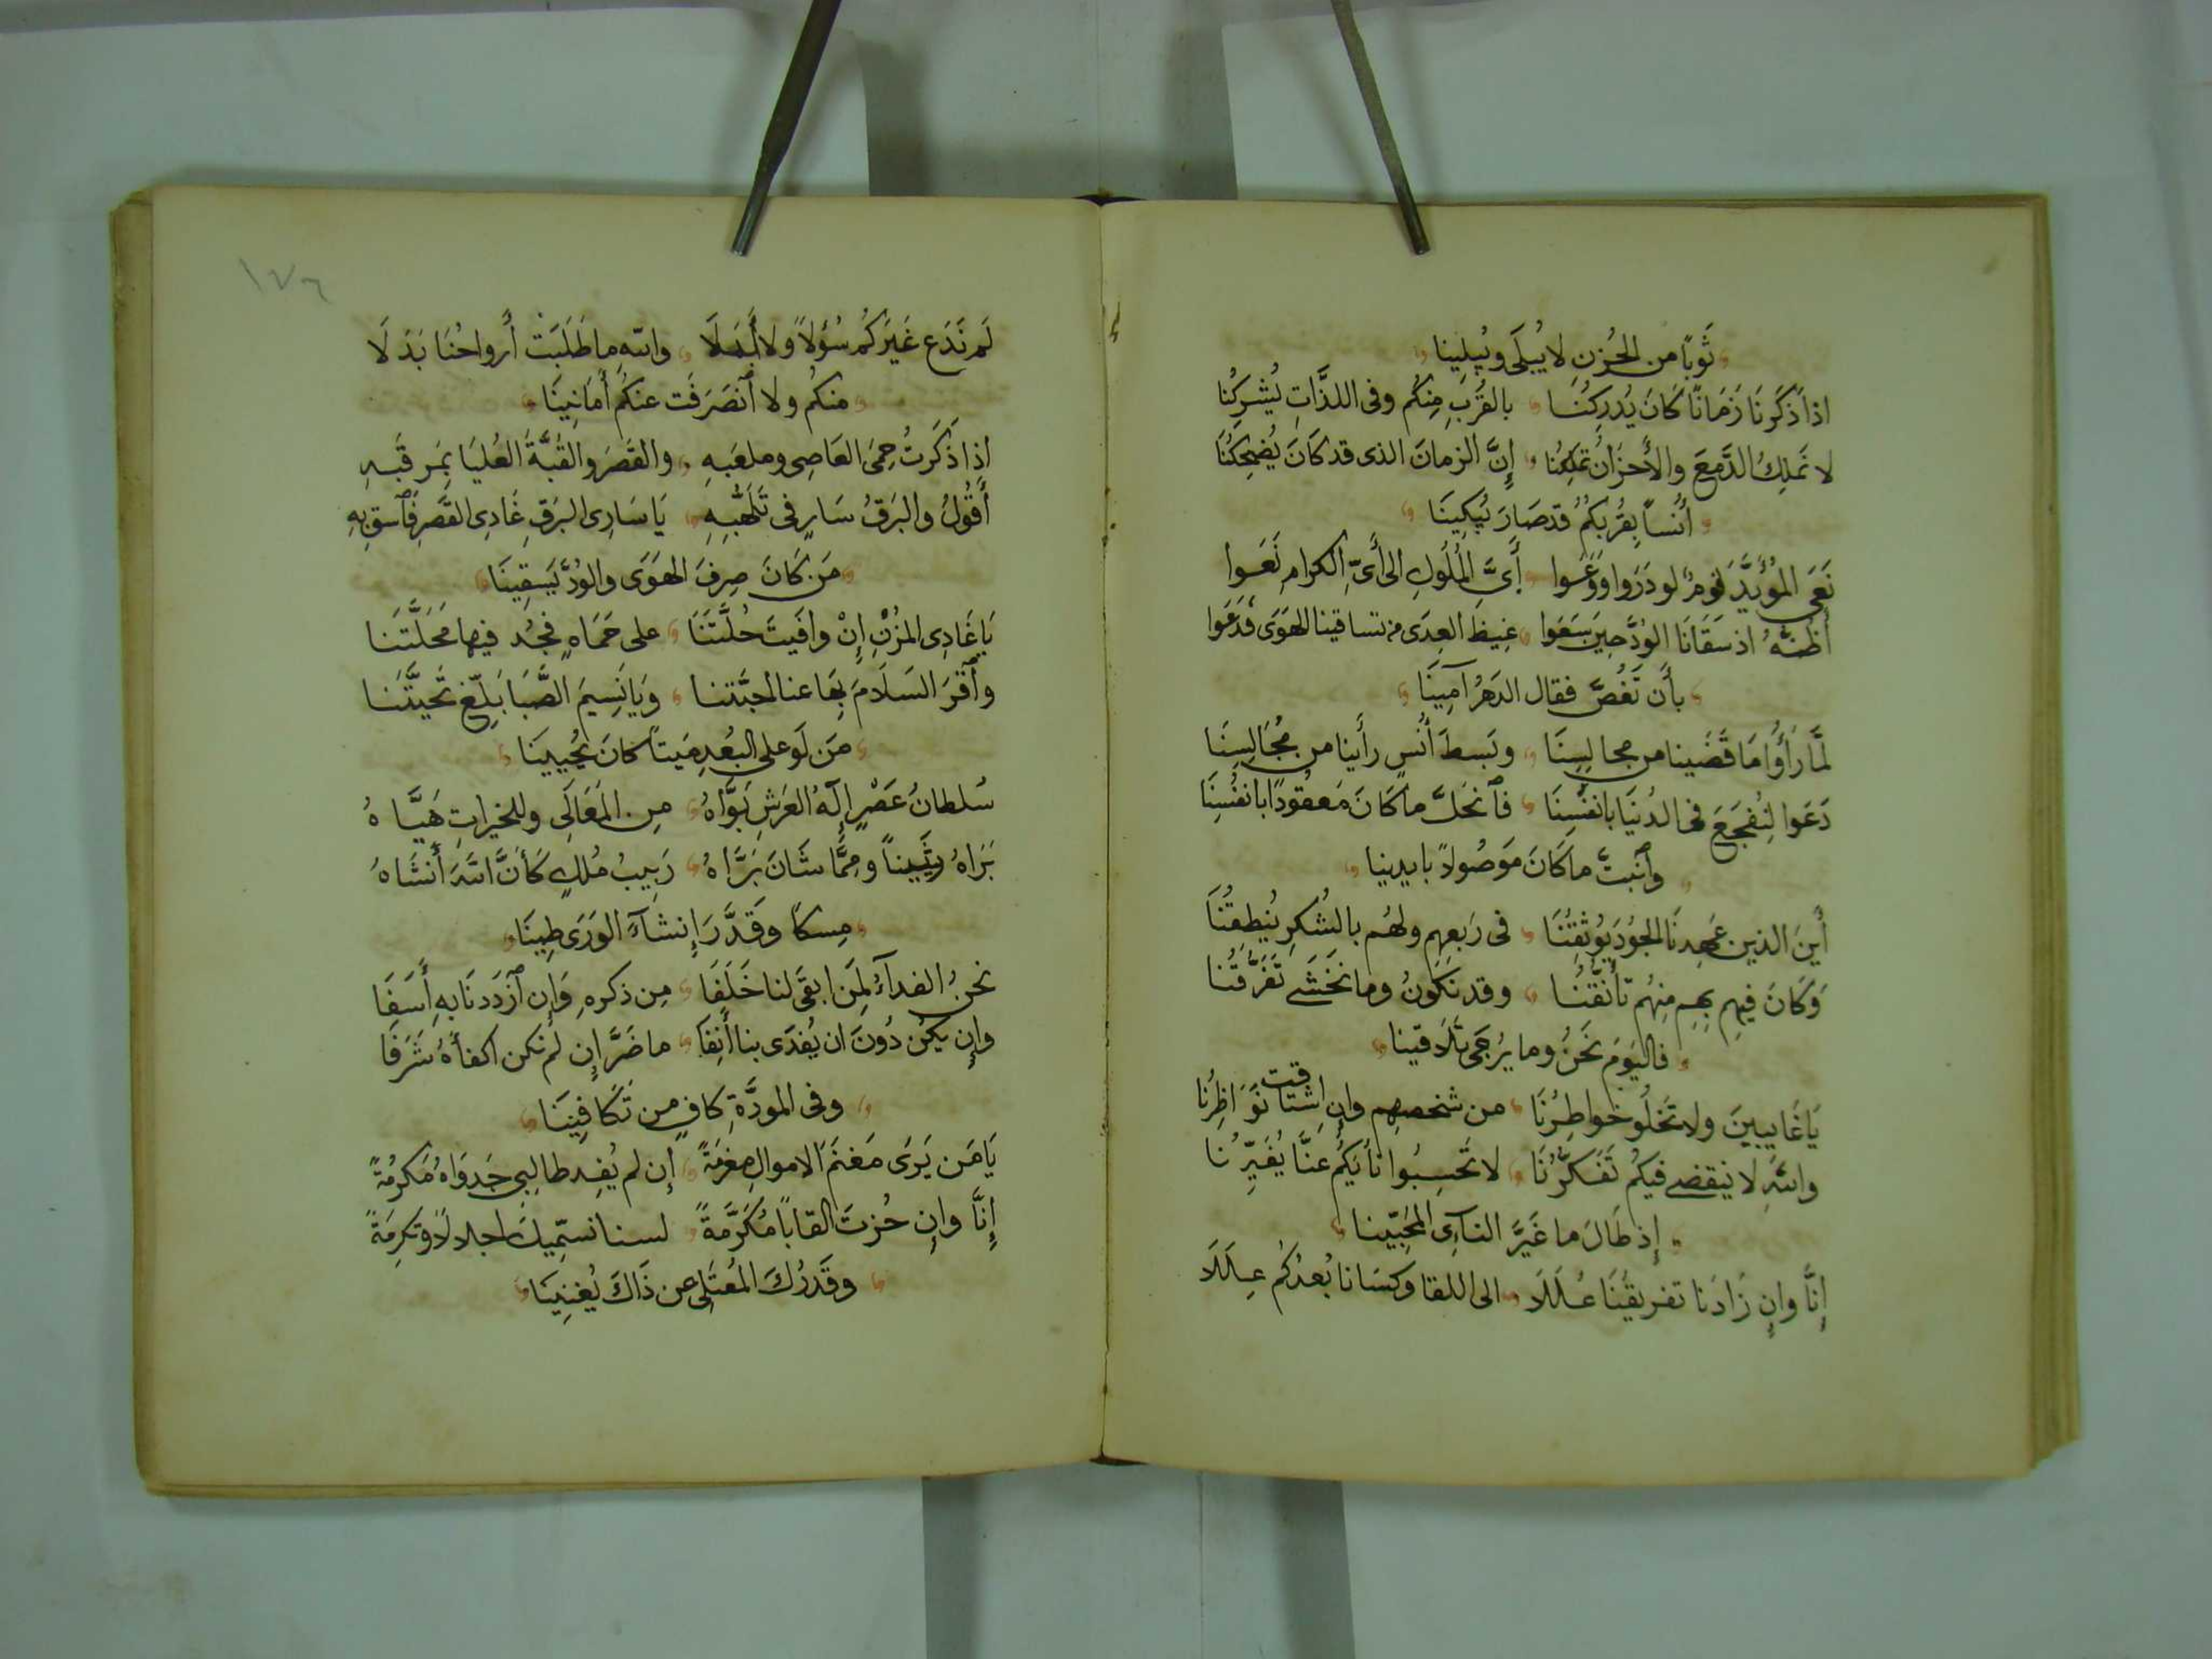 ثَوبًا من الحُزنِ لا يُبلَى ويُبلِينا
اذا ذَكَرنَا زَمَانًا كَانَ يُدرِكُنَا بالقُربِ مِنكُم وفى اللذَّاتِ يُشرِكُنا
لا نَملِكُ الدَّمعَ والأَحزَانُ تَملِكُنا إِنَّ الزمانَ الذى قد كَانَ يُضحِكُنَا
أُنسًا بِقُربِكُمُ قد صَارَ يُبكِينَا
نَعَى المُؤَيَّدَ قومٌ لو دَرَوا وَوَعَوا أَىَّ المُلُوكِ الى أَىِّ الكرامِ نَعَوا
أظُنُّهُ اذ سَقَانَا الوُدَّ حِينَ سَعَوا غِيظَ العِدَى من تساقينا الهَوَى فَدَعَوا
بأَن نَغُصَّ فقال الدَهرُ آمِينَا
لمَّا رَأَوا مَا قَضَينا من مجالِسِنَا وبَسطَ أُنسٍ رأَينا من مُجَالِسِنَا
دَعَوا لِنُفجَعَ فى الدُنيَا بانفُسِنَا فَٱنحَلَّ ما كَانَ مَعقُودًا بانفُسِنَا
وٱنبَتَّ ما كَانَ مَوصُولاً بايدينا
أَينَ الذين عَهِدنَا الجُودَ يُوثِقُنَا فى رَبعِهِم ولهُم بالشُكرِ يُنطِقُنَا
وَكَانَ فيهِم بِهِم مِنهُم تأَنُّقُنَا وقد نَكُونُ وما نَخشَى تَفَرُّقُنا
فاليَومَ نَحنُ وما يُرجَى تَلَاقينا
يَا غَايِبِينَ ولا تَخلُو خَواطِرُنَا من شخصِهِم وإن اشتاقت نَوَاظِرُنا
واللّهِ لا ينقضى فيكُم تَفَكُّرُنَا لا تَحسِبُوا نأيَكُم عنَّا يُغَيِّرُنا
إذ طَالَ ما غَيَّرَ النَآىِ المُحِبِّينا
إنَّا وإن زَادَنا تفريقُنَا غُلَلَا الى اللقا وكسَانا بُعدُكُم عِلَلَا
١٧٦
لَم نَدَع غَيرَكُم سُؤلاً ولا أَمَلَا واللّهِ ما طَلَبَتْ أَرواحُنَا بَدَلَا
منكُم ولا ٱنصَرَفَت عنكُم أَمَانِينَا
اذِا ذَكَرتُ حِمَى العَاصِى وملعَبِهِ والقَصرَ والقُبَّةَ العُليَا بِمَرقَبِهِ
أَقُولُ والبَرقُ سَارٍ فى تَلَهُّبِهِ يَا سَارِىَ البَرقِ غَادِى القَصرِ فَٱسقِ بِهِ
مَن كَانَ صِرفَ الهَوَى والوُدِّ يَسقِينَا
يَا غَادِىَ المُزْنِ إِنْ وافَيتَ حُلَّتَنَا على حَمَاهٍ فَجُد فيها مَحَلَّتَنا
وٱقرَ السَلَامَ بِهَا عنا لمحبَّتنا وَيَا نَسِيمَ الصَّبَا بَلِّغ تَحيَّتَنا
مَن لَو على البُعدِ مَيتاً كانَ يُحيِينَا
سُلطانُ عَصْرٍ إلَهُ العَرشِ بَوَّاهُ مِن المَعَالِى وللخيراتِ هَيَّاهُ
بَرَاهُ زَيناً وَمِمَّا شَانَ بَرَّاهُ رَبِيبُ مُلكٍ كَأَنَّ اللّهَ أَنشَاهُ
مِسكًا وَقَدَّرَ إنشَآءَ الوَرَى طِينَا
نحنُ الفدآءُ لِمَن ابقَى لنا خَلَفَا مِن ذكرهِ وَإن ٱزدَدنَا بهِ أَسَفَا
وإِن يكُن دُونَ ان يُفدَى بنا أَنِفَا ما ضَرَّ إِن لم نكن اكفأهُ شَرَفَا
وفى المودَّةِ كَافٍ من تَكَافِينَا
يَا مَن يَرَى مَغنَمَ الاموالِ مغرمَةً إن لم يُفِد طالِبِى جَدوَاهُ مَكرُمَةً
إِنَّا وإن حُزتَ القابًا مُكَرَّمَةً لسنا نسمّيكَ اجلالاً وتكرِمَةً
وقَدرُكَ المُعتَلِى عن ذَاكَ يُغنِينَا